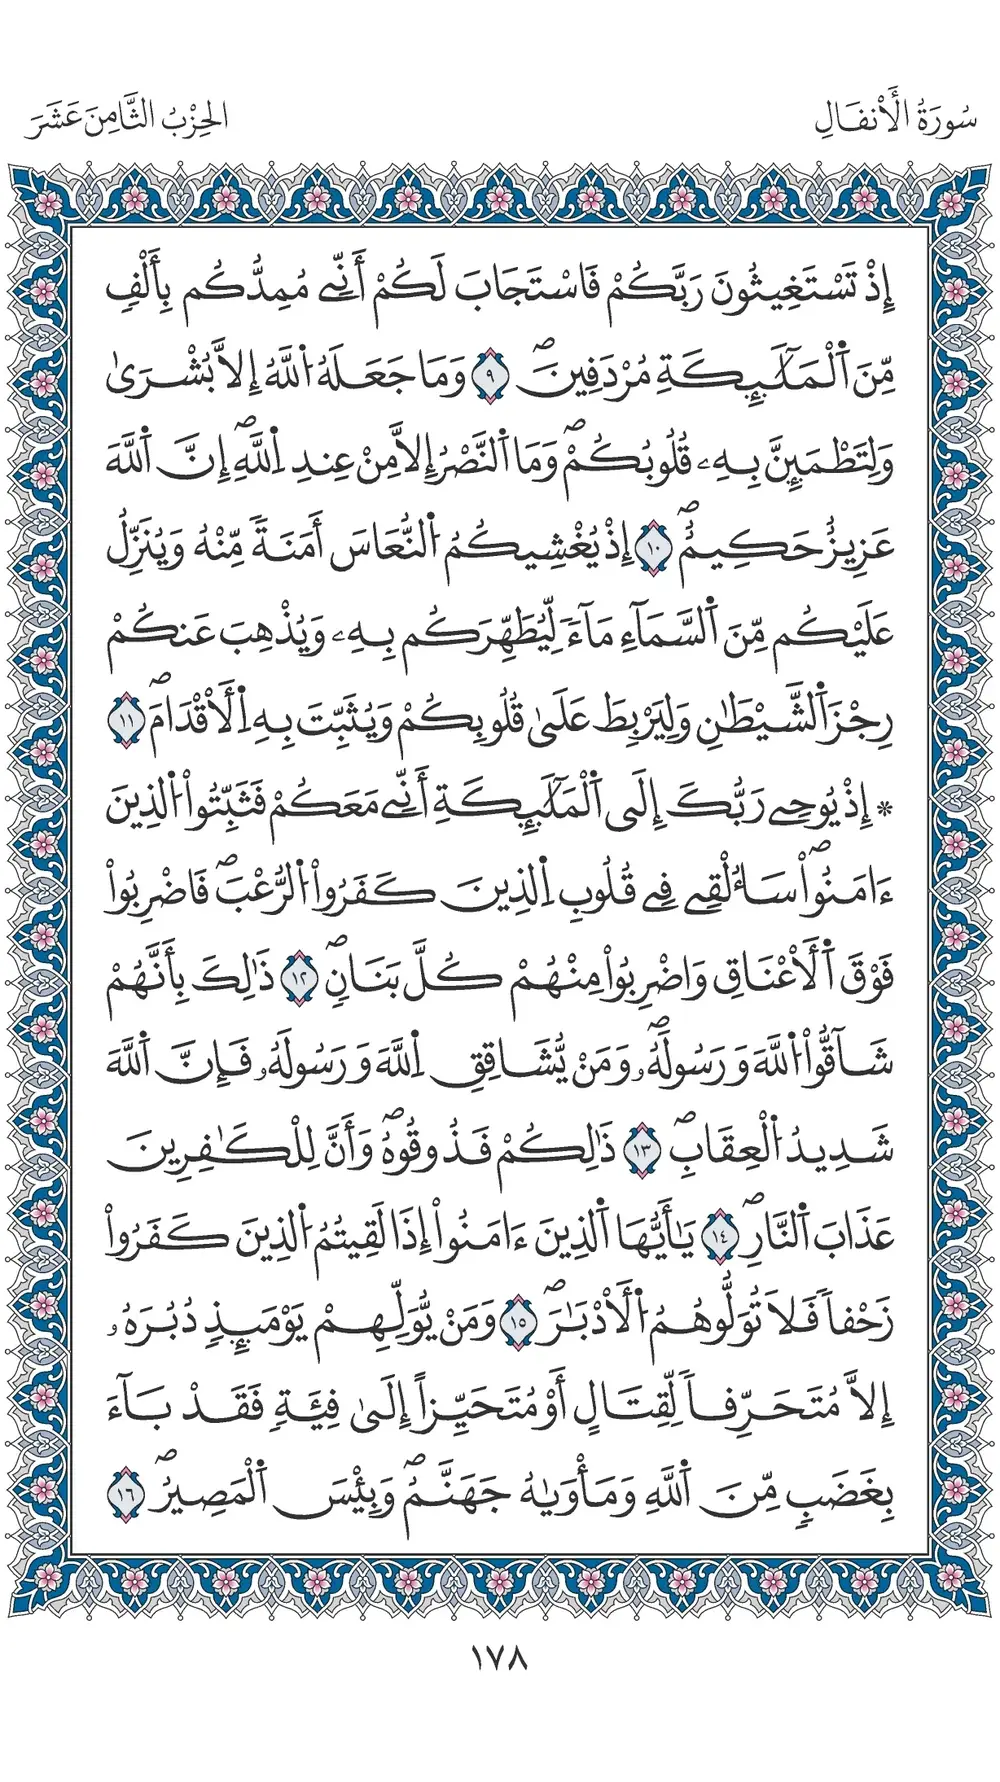 سُورَةُ الْأَنفَالِ
الحِزْبُ الثَّامِنَ عَشَرَ
إِذْ تَسْتَغِيثُونَ رَبَّكُمْ فَاسْتَجَابَ لَكُمْ أَنِّے مُمِدُّكُم بِأَلْفٖ
مِّنَ اَ۬لْمَلَٰٓئِكَةِ مُرْدَفِينَۖ ٩ وَمَا جَعَلَهُ اُ۬للَّهُ إِلَّا بُشْر۪يٰ
وَلِتَطْمَئِنَّ بِهِۦ قُلُوبُكُمْۖ وَمَا اَ۬لنَّصْرُ إِلَّا مِنْ عِندِ اِ۬للَّهِۖ إِنَّ اَ۬للَّهَ
عَزِيزٌ حَكِيمٌۖ ١٠ إِذْ يُغْشِيكُمُ اُ۬لنُّعَاسَ أَمَنَةٗ مِّنْهُ وَيُنَزِّلُ
عَلَيْكُم مِّنَ اَ۬لسَّمَآءِ مَآءٗ لِّيُطَهِّرَكُم بِهِۦ وَيُذْهِبَ عَنكُمْ
رِجْزَ اَ۬لشَّيْطَٰنِ وَلِيَرْبِطَ عَلَىٰ قُلُوبِكُمْ وَيُثَبِّتَ بِهِ اِ۬لْأَقْدَامَۖ ١١
* إِذْ يُوحِے رَبُّكَ إِلَى اَ۬لْمَلَٰٓئِكَةِ أَنِّے مَعَكُمْ فَثَبِّتُواْ اُ۬لذِينَ
ءَامَنُواْۖ سَأُلْقِے فِے قُلُوبِ اِ۬لذِينَ كَفَرُواْ اُ۬لرُّعْبَۖ فَاضْرِبُواْ
فَوْقَ اَ۬لْأَعْنَاقِ وَاضْرِبُواْ مِنْهُمْ كُلَّ بَنَانٖۖ ١٢ ذَٰلِكَ بِأَنَّهُمْ
شَآقُّواْ اُ۬للَّهَ وَرَسُولَهُۥۖ وَمَنْ يُّشَاقِقِ اِ۬للَّهَ وَرَسُولَهُۥ فَإِنَّ اَ۬للَّهَ
شَدِيدُ اُ۬لْعِقَابِۖ ١٣ ذَٰلِكُمْ فَذُوقُوهُۖ وَأَنَّ لِلْكٰ۪فِرِينَ
عَذَابَ اَ۬لنّ۪ارِۖ ١٤ يَٰأَيُّهَا اَ۬لذِينَ ءَامَنُواْ إِذَا لَقِيتُمُ اُ۬لذِينَ كَفَرُواْ
زَحْفاٗ فَلَا تُوَلُّوهُمُ اُ۬لْأَدْبَٰرَۖ ١٥ وَمَنْ يُّوَلِّهِمْ يَوْمَئِذٖ دُبُرَهُۥ
إِلَّا مُتَحَرِّفاٗ لِّقِتَالٍ أَوْ مُتَحَيِّزاً إِلَىٰ فِئَةٖ فَقَدْ بَآءَ
بِغَضَبٖ مِّنَ اَ۬للَّهِ وَمَأْوَيٰهُ جَهَنَّمُۖ وَبِئْسَ اَ۬لْمَصِيرُۖ ١٦
١٧٨